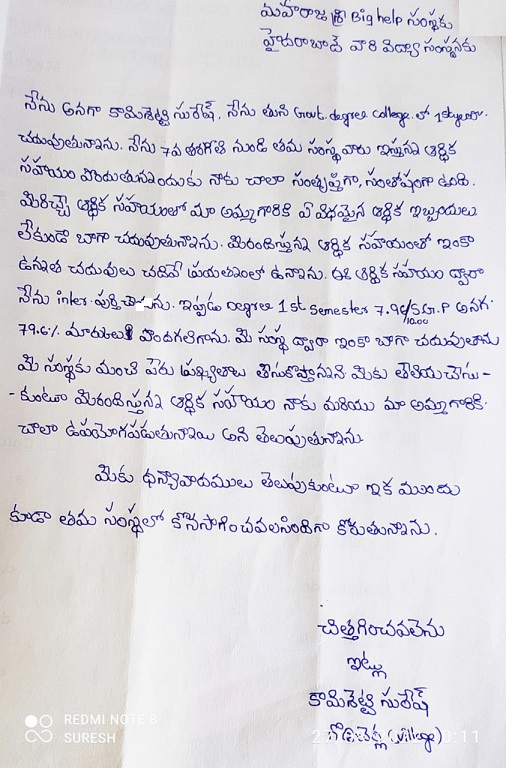 మహారాజశ్రీ Big help సంస్థకు
హైదరాబాదే వారి విద్యా సంస్థనకు
నేను అనగా కామిశెట్టి సురేష్. నేను తుని Govt. degree College. లో 1st year.
చదువుతున్నాను. నేను 7వ తరగతి నుండి తమ సంస్థవారు ఇస్తున్న ఆర్థిక
సహాయం పొందుతున్నందుకు నాకు చాలా సంతృప్తిగా, సంతోషంగా ఉంది.
మీరిచ్చే ఆర్థిక సహాయంలో మా అమ్మగారికి ఏ విధమైన ఆర్థిక ఇబ్బందులు
లేకుండా బాగా చదువుతున్నాను. మీరందిస్తున్న ఆర్థిక సహాయంతో ఇంకా
ఉన్నత చదువులు చదివే ప్రయత్నంలో ఉన్నాను. ఈ ఆర్థిక సహాయం ద్వారా
నేను inter పూర్తి చేసాను. ఇప్పుడు Degree 1st Semester 7.96/ G.P అనగా
10.00
79.6% మార్కులు పొందగలిగాను. మీ సంస్థ ద్వారా ఇంకా బాగా చదువుతాను
మీ సంస్థకు మంచి పేరు ప్రఖ్యాతులు తీసుకొస్తానని మీకు తెలియచేసు-
-కుంటూ మీరందిస్తున్న ఆర్థిక సహాయం నాకు మరియు మా అమ్మగారికి.
చాలా ఉపయోగపడుతున్నాయి అని తెలుపుతున్నాను
మీకు ధన్యావాదములు తెలుపుకుంటూ ఇక ముందు
కూడా తమ సంస్థలో కొనసాగించవలసిందిగా కోరుతున్నాను.
చిత్తగించవలెను
ఇట్లు
కామిశెట్టి సురేష్
(village)
REDMI NOTE 8
SURESH